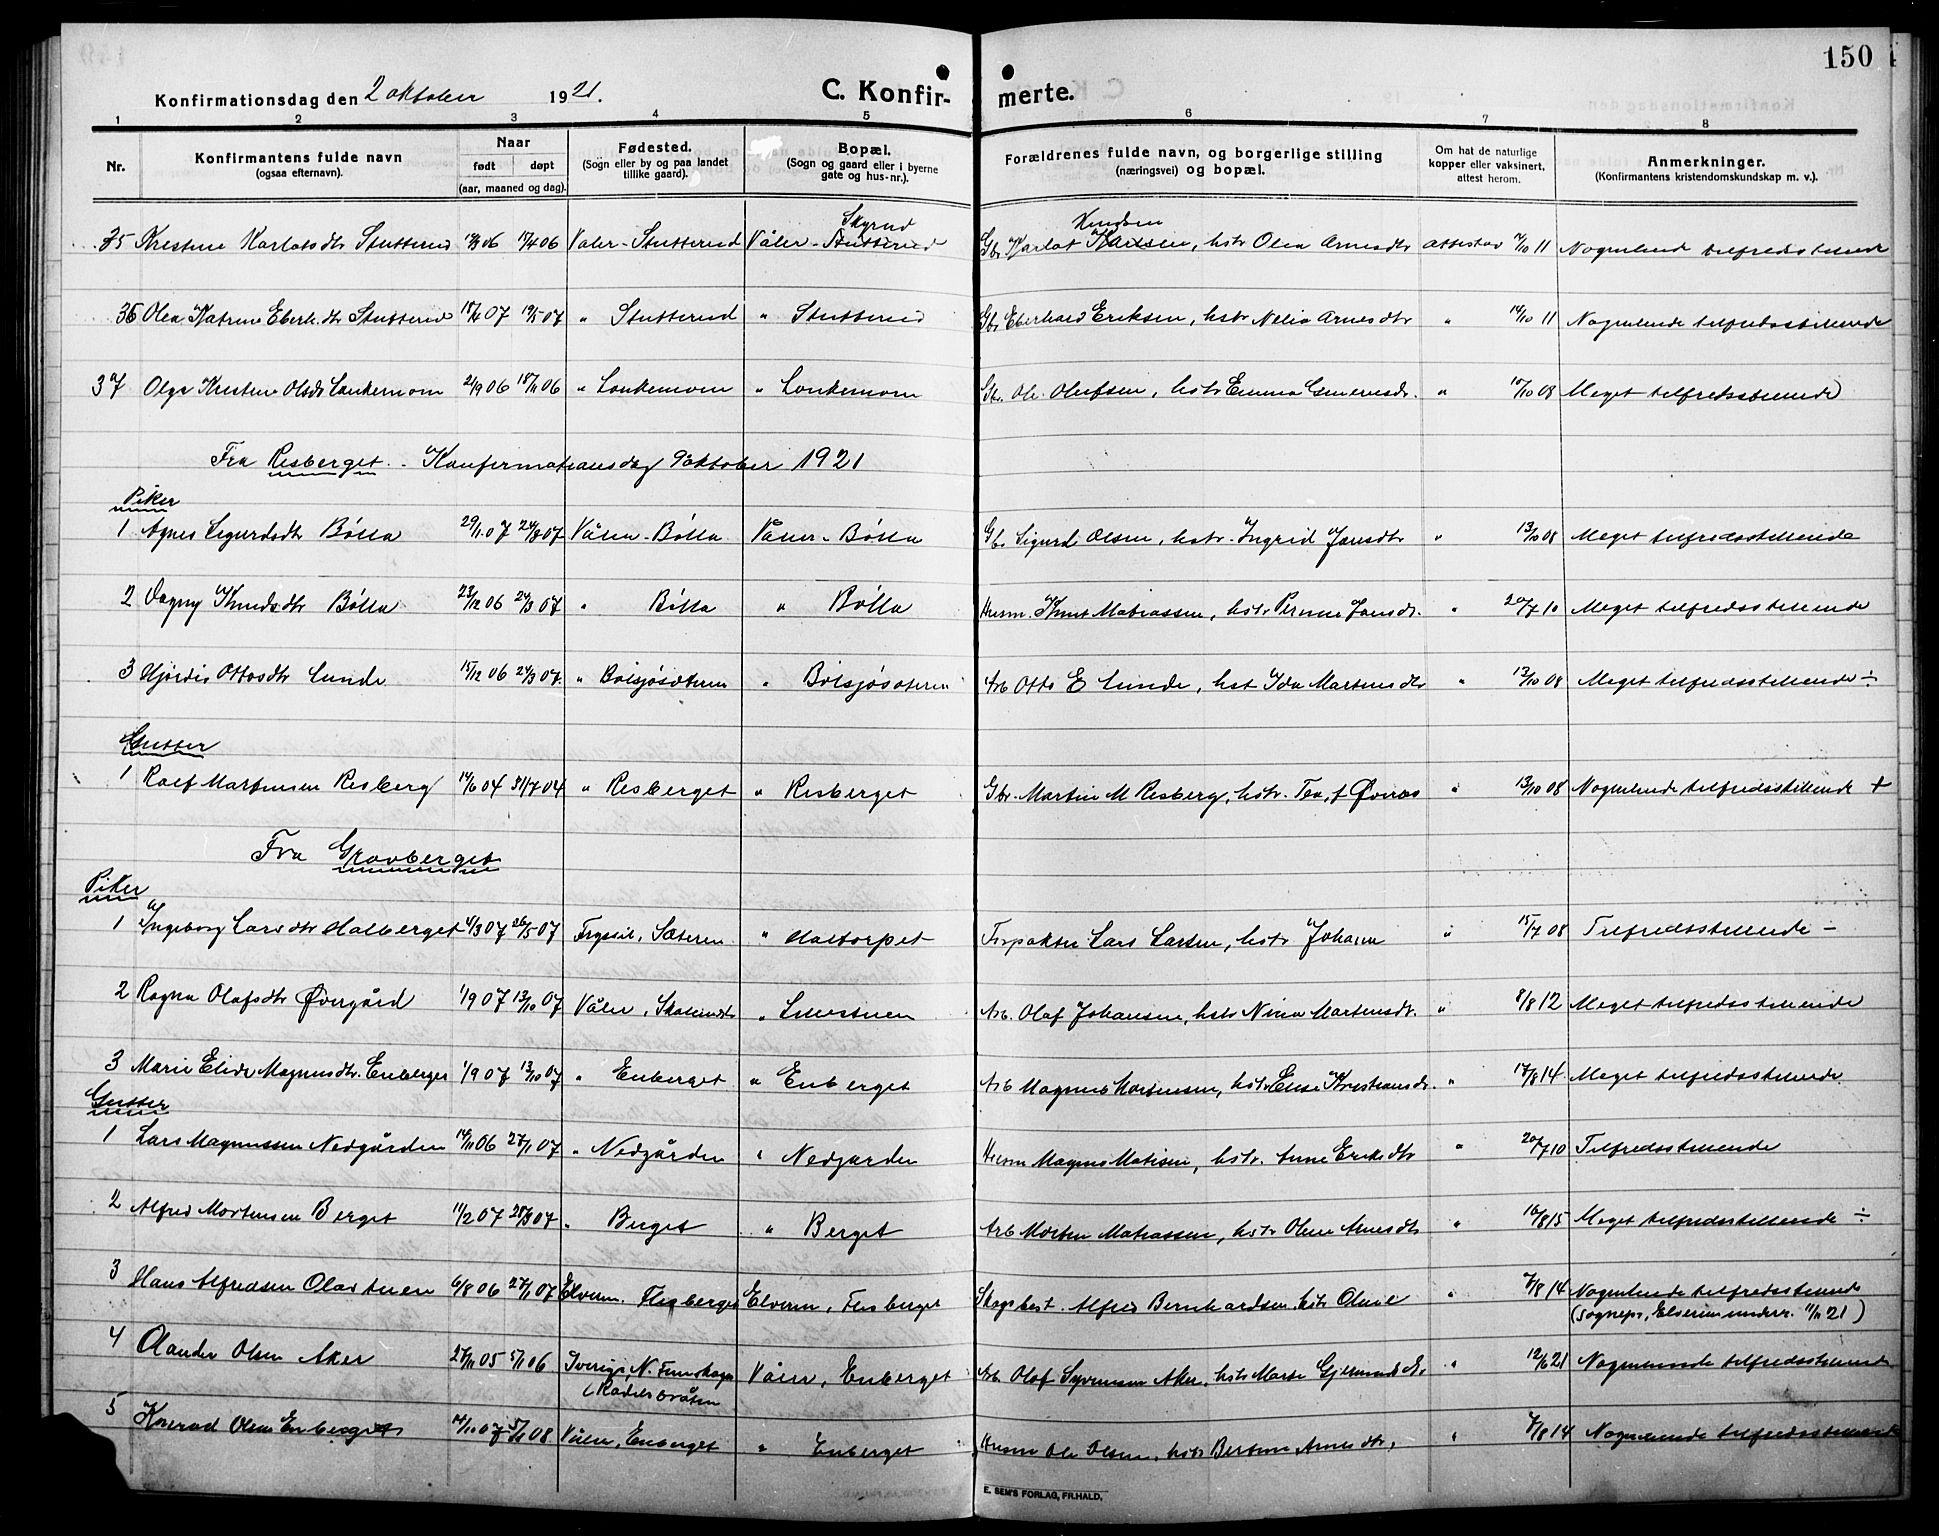 150
Konfirmationsdag den 2 oktober 1921. C. Konfir- merte.
1 2 3 4 5 6 7 8
Nr. Konfirmantens fulde navn (ogsaa efternavn). Naar født døpt (aar, maaned og dag). Fødested. (Sogn eller by og paa landet tillike gaard). Bopæl. (Sogn og gaard eller i byerne gate og hus-nr.). Forældrenes fulde navn, og borgerlige stilling (næringsvei) og bopæl. Om hat de naturlige kopper eller vaksinert, attest herom. Anmerkninger. (Konfirmantens kristendomskundskap m. v.).
35 Kristine Karlotsdtr Stutterud 06 17/4 06 Våler - Stutterud Våler - Stutterud Skyrud Gbr Karlot Knudsen, hstr Olea Arnesdtr attest av 7/10 11 Nogenlunde tilfredsstillende
36 Olea Katrine Eberh.dtr Stutterud 18/4 07 19/5 07 " Stutterud " Stutterud Gbr Eberhard Eriksen, hstr Nelia Arnesdtr " 14/10 11 Nogenlunde tilfredsstillende
37 Olga Kristine Olsdtr Lonkemoen 21/9 06 18/11 06 " Lonkemoen " Lonkemoen Gbr. Ole Olufsen, hstr Emma " 10/10 08 Meget tilfredsstillende
Fra Risberget. - Konfirmationsdag 9 oktober 1921
Piker
1 Agnes Sigurdsdtr Bölla 29/1 07 24/3 07 Våler - Bölla Våler - Bölla Gbr Sigurd Olsen, hstr. Ingrid Jansdtr " 13/10 08 Meget tilfredsstillende
2 Dagny Knudsdtr Bölla 23/12 06 24/3 07 " Bölla " Bölla Husm. Knut Matiassen, hstr Pernne Jansdtr. " 20/7 10 Meget tilfredsstillende
3 Hjördis Ottosdtr Lunde 15/12 06 24/3 07. " Bölsjösæteren " Bölsjösæteren Arb Otto E Lunde, hst Ida Martinsdtr " 13/10 08 Meget tilfredsstillende ÷
Gutter
1 Rolf Martinsen Risberg 14/6 04 31/7 04 " Risberget " Risberget Gbr. Martin M Risberg, hstr. Tea, f Øvraas " 13/10 08 Nogenlunde tilfredsstillende +
Fra Gravberget
Piker
1 Ingeborg Larsdtr Halberget 4/3 07 26/5 07 Trysil, Sæteren " Haltorpet Forpakter Lars Larsen, hstr Johanna " 15/7 08 Tilfredsstillende -
2 Ragna Olafsdtr Øvergård 1/9 07 13/10 07 Våler, " Lillestuen Arb. Olaf Johansen, hstr Nina Martinsdtr. " 8/8 12 Meget tilfredsstillende
3 Marie Elida Magnusdtr. Enberget 1/9 07 13/10 07 " Enberget " Enberget Arb Magnus Mortensen, hstr Elise Kristiansdtr. " 17/8 14 Meget tilfredsstillende
Gutter
1 Lars Magnussen Nedgården 14/11 06 27/1 07 " Nedgården " Nedgården Husm Magnus Matisen, hstr. Anne Eriksdtr " 20/7 10 Tilfredsstillende
2 Alfred Mortensen Berget 11/2 07 28/3 07 " Berget " Berget Arb Morten Matiassen, hstr Oline Arnesdtr " 16/8 15 Meget tilfredsstillende ÷
3 Hans Alfredsen Olastuen 6/8 06 27/1 07 Elverum. Flisberget Elverum, Flisberget Skogsbest. Alfred Bernhardsen, hstr " 7/8 14 Nogenlunde tilfredsstillende
(sognepr. Elverum underr. 11/11 21)
4 Olander Olsen Aker 27/11 05 5/1 06 Sverige, N. Finnskoga Våler, Enberget Arb Olof Syvensen Aker, hstr Marte Gjermundsdtr. " 12/6 21 Nogenlunde tilfredsstillende
5 Konrad Olsen Enberget 14/11 07 08 Våler, Enberget " Enberget Husm Ole Olsen, hstr Bertine Arnesdtr, " 7/8 14 Nogenlunde tilfredsstillende
E. SEM'S FORLAG, FR.HALD.